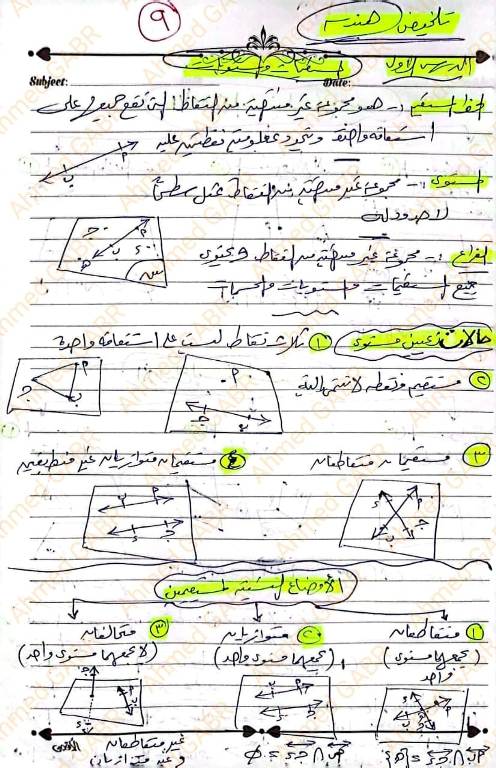 ٩
تلخيص هندسة
الدرس الأول
المستقيمات والمستويات
Subject:
Date:
الخط المستقيم :- هو مجموعة غير منتهية من النقاط التي تقع جميعها على
استقامة واحدة ويحدد بمعلومية نقطتين عليه
المستوى :- مجموعة غير منتهية من النقاط تمثل سطحاً
لا حدود له
الفراغ :- مجموعة غير منتهية من النقاط ويحتوي
جميع المستقيمات والمستويات والمجسمات
حالات تعيين مستوى ① ثلاث نقاط ليست على استقامة واحدة
② مستقيم ونقطة لا تنتمي إليه
③ مستقيمان متقاطعان
④ مستقيمان متوازيان غير منطبقين
الأوضاع النسبية لمستقيمين
① متقاطعان
(يجمعهما مستوى واحد)
② متوازيان
(يجمعهما مستوى واحد)
③ متخالفان
(لا يجمعهما مستوى واحد)
غير متقاطعان
وغير متوازيان